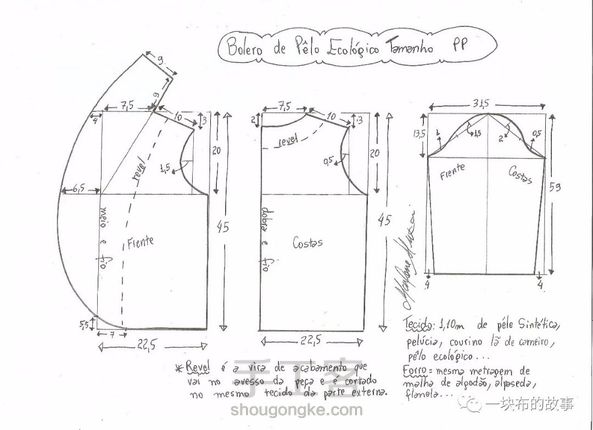 Bolero de Pêlo Ecológico Tamanho PP
9
9
7,5
10
3
4
revel
1,5
20
6,5
meio e fio
Frente
45
5,5
7
22,5
7,5
2
10
3
revel
0,5
20
dobra e fio
Costas
45
22,5
31,5
13,5
1
1,5
2
0,5
Frente
Costas
59
4
4
Tecido: 1,10m de pêlo Sintético,
pelúcia, courino lã de carneiro,
pêlo ecológico...
Forro = mesma metragem de
malha de algodão, alpaseda,
flanela...
* Revel é a vira de acabamento que
vai no avesso da peça e é cortado
no mesmo tecido da parte externa.
手工客
shougongke.com
一块布的故事